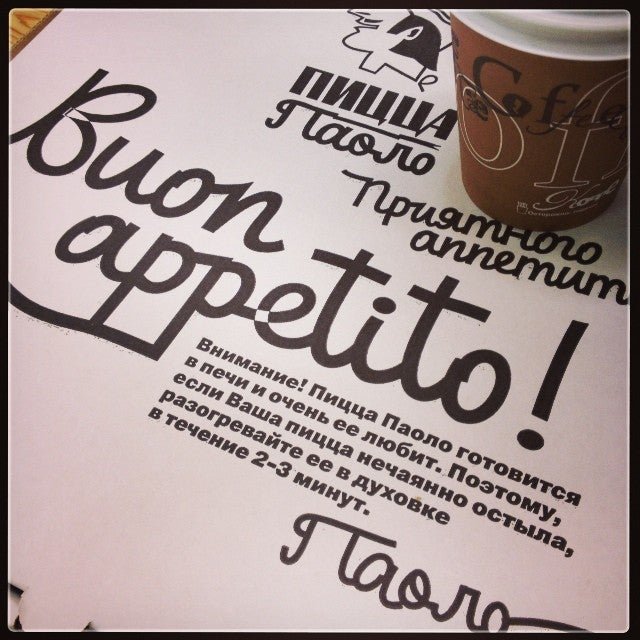 ПИЦЦА
Паоло
Coffee
Приятного
аппетит
Buon
appetito!
Внимание! Пицца Паоло готовится
в печи и очень ее любит. Поэтому,
если Ваша пицца нечаянно остыла,
разогревайте ее в духовке
в течение 2-3 минут.
Паоло